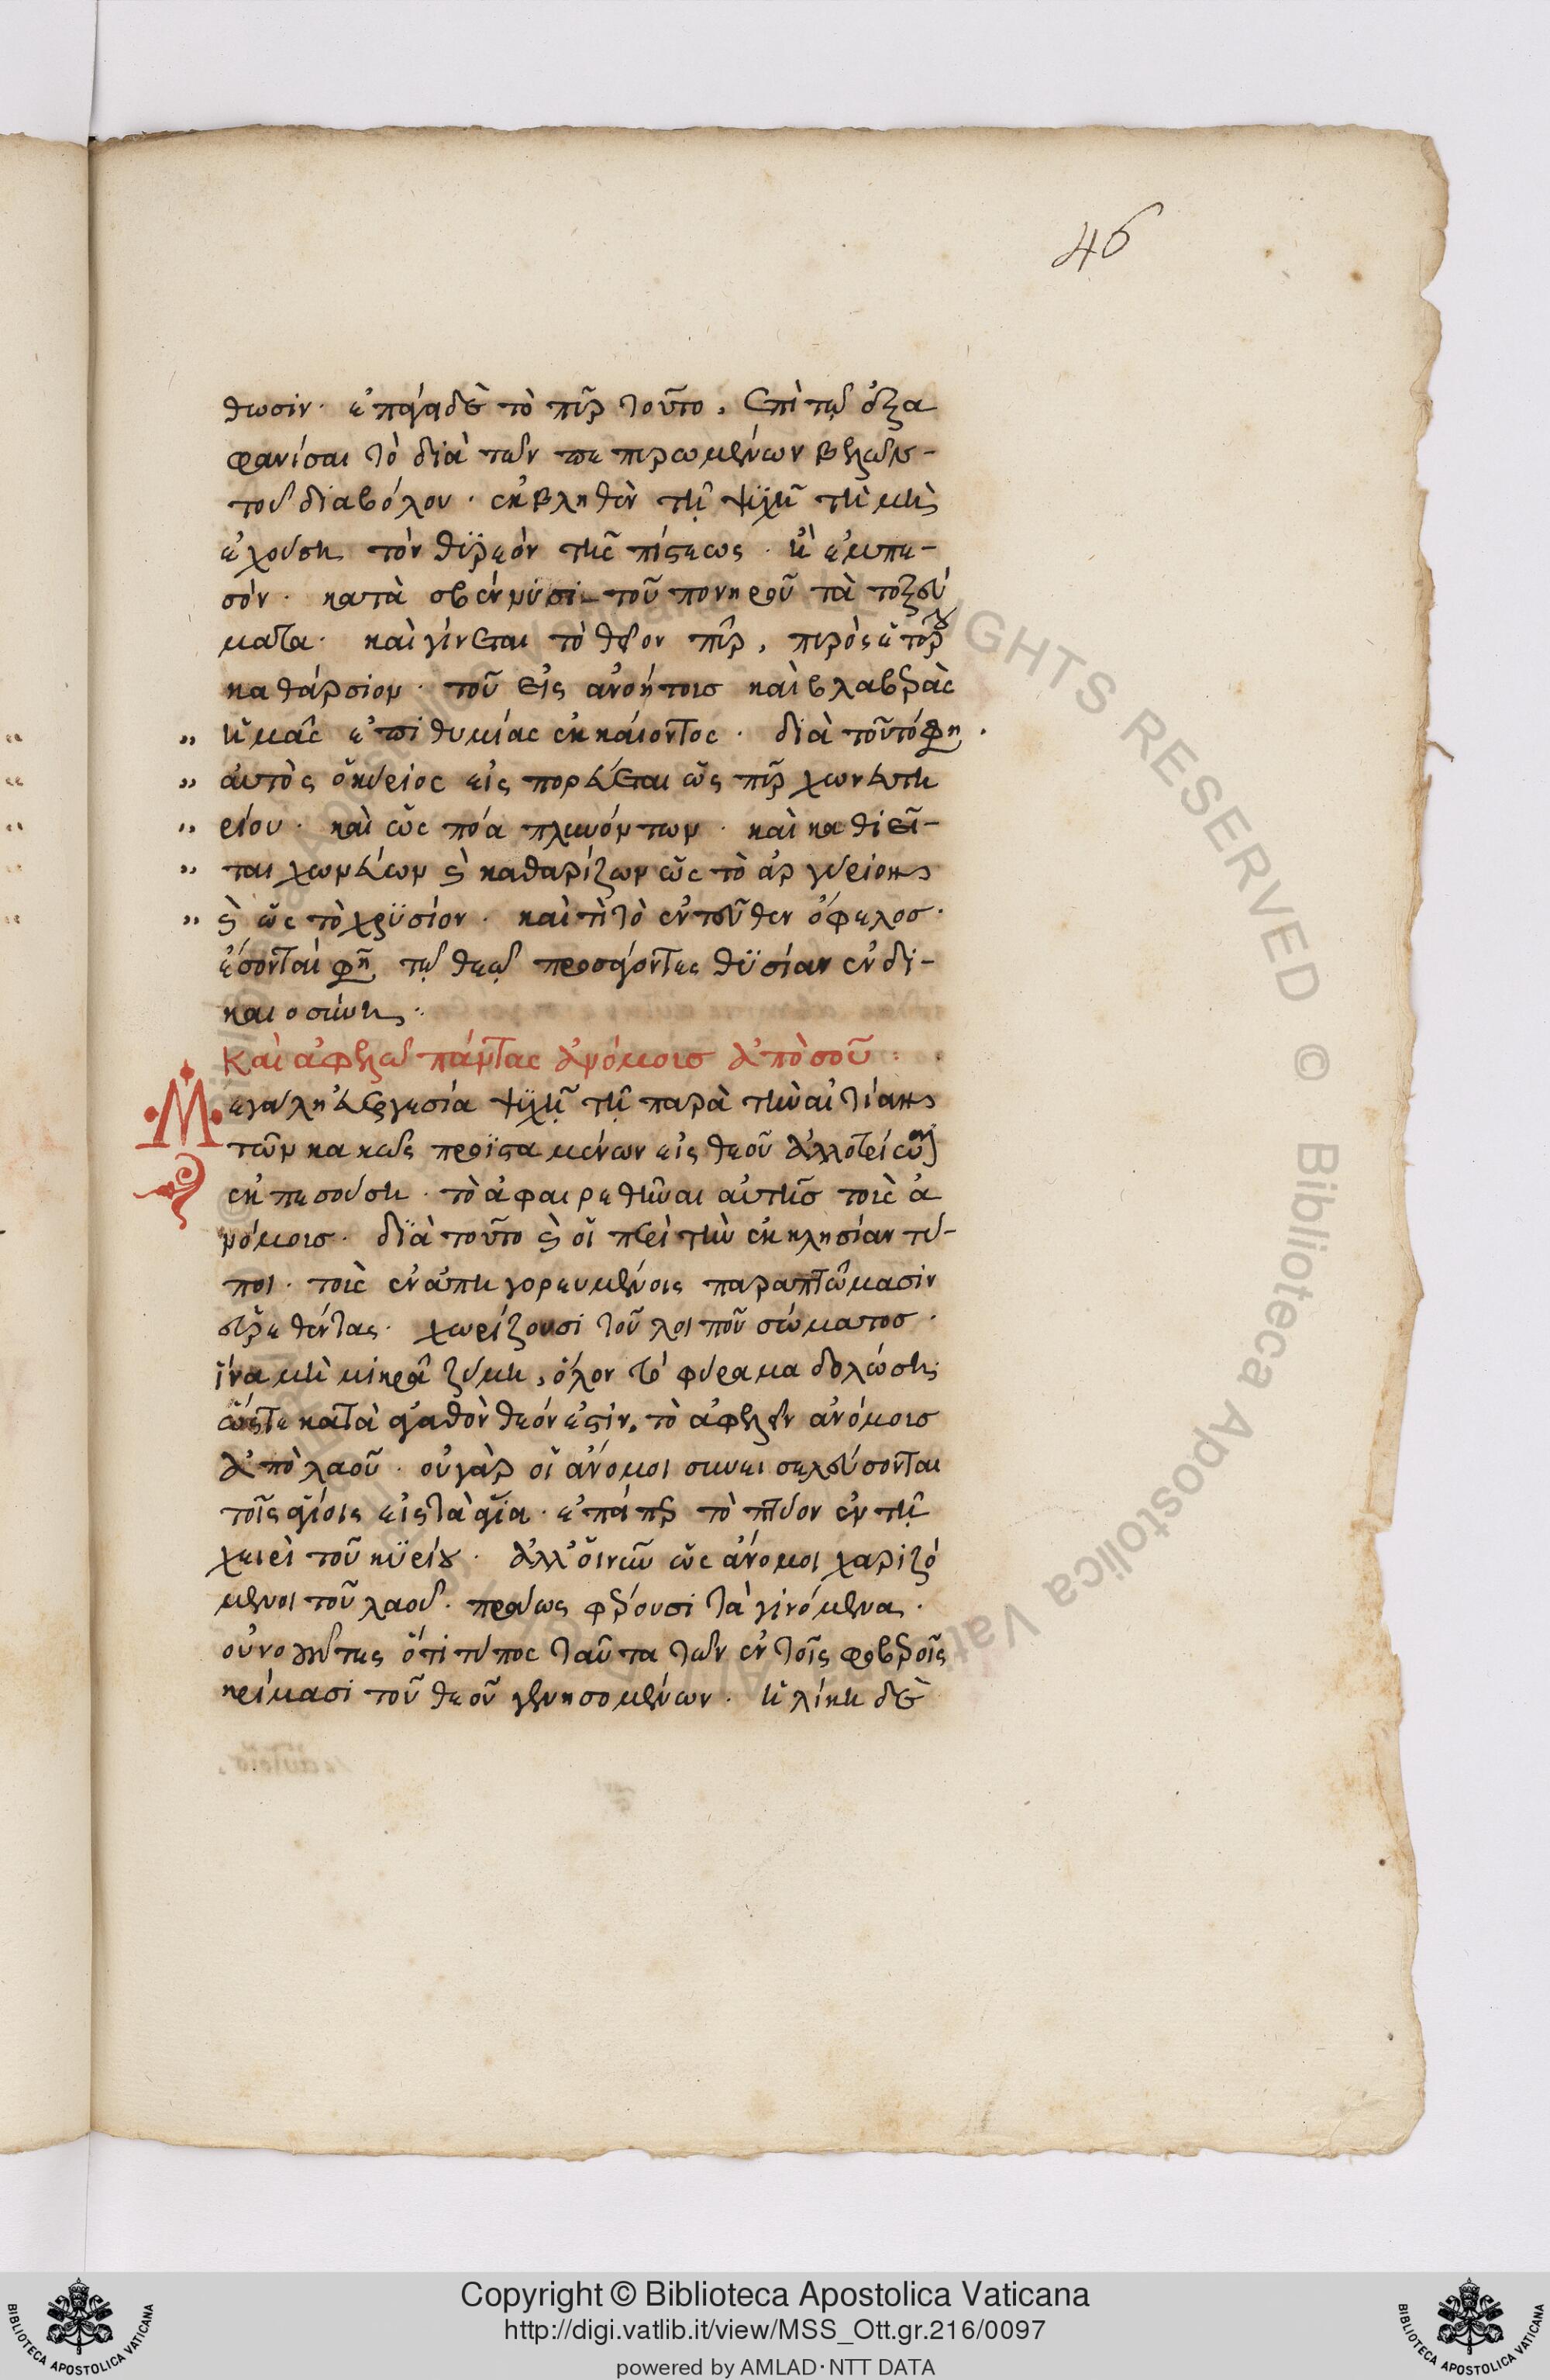 46
θωσιν· ἐπάγει δὲ τὸ πῦρ τοῦτο, ἐπὶ τῷ ἐξα
φανίσαι τὸ διὰ τῶν πεπυρωμένων βελῶν
τοῦ διαβόλου· ἐκβληθὲν τῇ ψυχῇ τῇ μὴ
ἐχούσῃ τὸν θυρεὸν τῆς πίστεως· ἢ ἐμπε-
σὸν· κατὰ σβεννύσι τοῦ πονηροῦ τὰ τοξεύ
ματα· καὶ γίνεται τὸ θεῖον πῦρ, πυρὸς ἑτέρου
καθάρσιον· τοῦ εἰς ἀνοήτους καὶ βλαβερὰς
ἡμᾶς ἐπιθυμίας ἐκκαίοντος· διὰ τοῦτό φη·
αὐτὸς ὁ κύριος εἰσπορεύεται ὡς πῦρ χωνευτη
ρίου· καὶ ὡς πόα πλυνόντων· καὶ καθιεῖ-
ται χωνεύων καὶ καθαρίζων ὡς τὸ ἀργύριον
καὶ ὡς τὸ χρυσίον· καὶ τί τὸ ἐντεῦθεν ὄφελος·
ἔσονται φη τῷ θεῷ προσάγοντες θυσίαν ἐν δι-
καιοσύνῃ·
Καὶ ἀφελῶ πάντας ἀνόμους ἀπὸ σοῦ:
Μεγάλη εὐεργεσία ψυχῇ τῇ παρὰ τὴν αἰτίαν
τῶν κακῶς προϊσταμένων εἰς θεοῦ ἀλλοτρίωσιν
ἐκπεσούσῃ· τὸ ἀφαιρεθῆναι αὐτῆς τοὺς ἀ
νόμους· διὰ τοῦτο καὶ οἱ περὶ τὴν ἐκκλησίαν τύ-
ποι· τοὺς ἐν ἀπηγορευμένοις παραπτώμασιν
εὑρεθέντας· χωρίζουσι τοῦ λοιποῦ σώματος·
ἵνα μὴ μικρὰ ζύμη, ὅλον τὸ φύραμα δολώσῃ·
ὥστε κατὰ ἀγαθὸν θεόν ἐστιν, τὸ ἀφελεῖν ἀνόμους
ἀπὸ λαοῦ· οὐ γὰρ οἱ ἄνομοι συνεισελεύσονται
τοῖς ἁγίοις εἰς τὰ ἅγια· ἐπάπερ τὸ πτύον ἐν τῇ
χειρὶ τοῦ κυρίου· ἀλλ' οἱ νῦν ὡς ἄνομοι χωριζό
μενοι τοῦ λαοῦ· πράως φέρουσι τὰ γινόμενα·
οὐ νοοῦντες ὅτι τύπος ταῦτα τῶν ἐν τοῖς φοβεροῖς
κρίμασι τοῦ θεοῦ γενησομένων· ἡλίκη δὲ
Copyright © Biblioteca Apostolica Vaticana
http://digi.vatlib.it/view/MSS_Ott.gr.216/0097
powered by AMLAD·NTT DATA